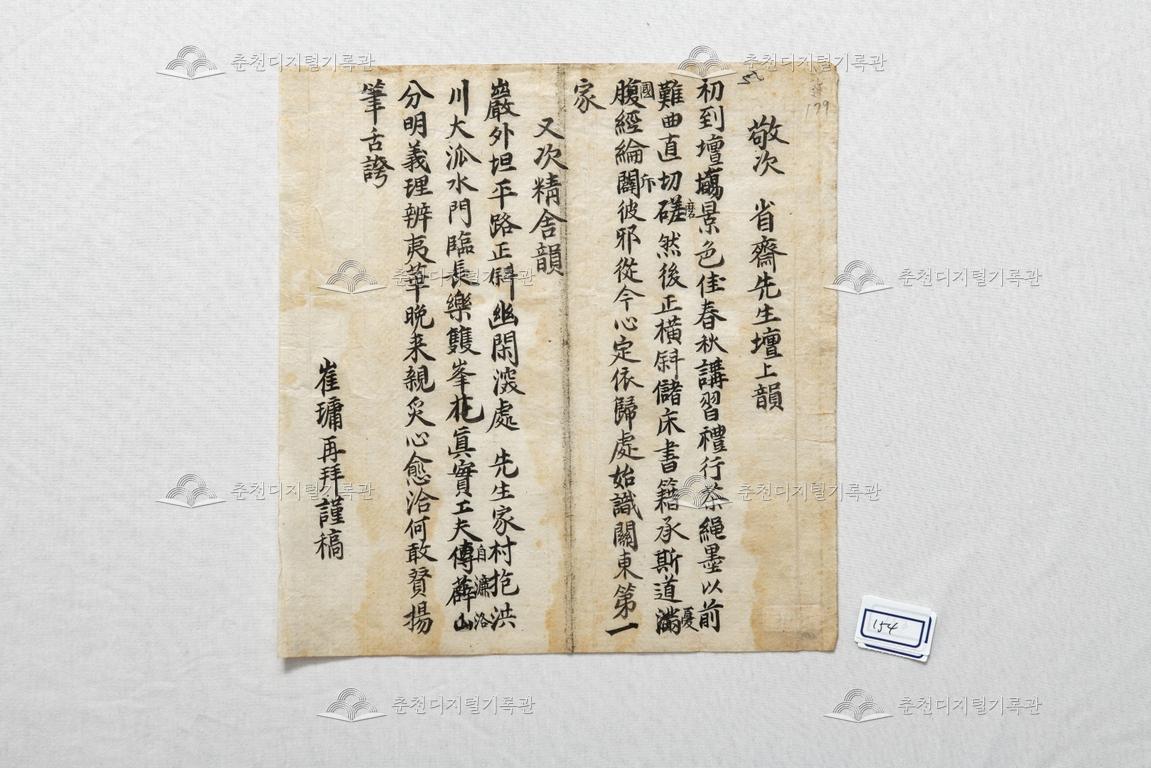 敬次 省齋先生壇上韻
初到壇場景色佳春秋講習禮行茶繩墨以前
難曲直切磋然後正橫斜儲床書籍承斯道滿
磨
憂
腹經綸闢彼邪從今心定依歸處始識關東第一
國
斥
家
又次精舍韻
巖外坦平路正斜幽閑深處 先生家村抱洪
川大泒水門臨長樂雙峯花眞實工夫傳蘗山
自濂洛
分明義理辨夷華晚来親炙心愈洽何敢贊揚
筆舌誇
崔墉再拜謹稿
179
154
춘천디지털기록관
춘천디지털기록관
춘천디지털기록관
춘천디지털기록관
춘천디지털기록관
춘천디지털기록관
춘천디지털기록관
춘천디지털기록관